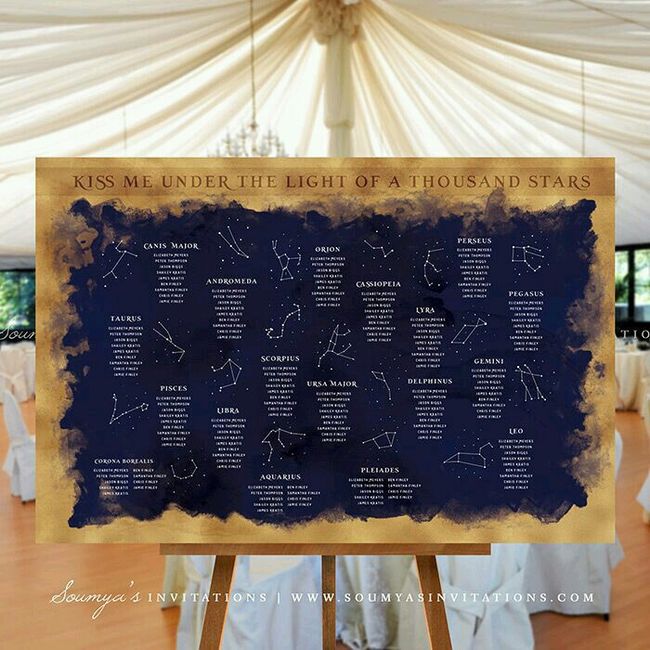 KISS ME UNDER THE LIGHT OF A THOUSAND STARS
CANIS MAJOR
ELIZABETH MEYERS
PETER THOMPSON
JASON BIGGS
SHAILEY KRATIS
JAMES KRATIS
BEN FINLEY
SAMANTHA FINLEY
CHRIS FINLEY
ANDROMEDA
ELIZABETH MEYERS
PETER THOMPSON
JASON BIGGS
SHAILEY KRATIS
JAMES KRATIS
BEN FINLEY
SAMANTHA FINLEY
CHRIS FINLEY
JAMIE FINLEY
ORION
ELIZABETH MEYERS
PETER THOMPSON
JASON BIGGS
SHAILEY KRATIS
JAMES KRATIS
BEN FINLEY
SAMANTHA FINLEY
CHRIS FINLEY
CASSIOPEIA
ELIZABETH MEYERS
PETER THOMPSON
JASON BIGGS
SHAILEY KRATIS
JAMES KRATIS
BEN FINLEY
SAMANTHA FINLEY
CHRIS FINLEY
JAMIE FINLEY
PERSEUS
ELIZABETH MEYERS
PETER THOMPSON
JASON BIGGS
SHAILEY KRATIS
JAMES KRATIS
BEN FINLEY
SAMANTHA FINLEY
CHRIS FINLEY
PEGASUS
ELIZABETH MEYERS
PETER THOMPSON
JASON BIGGS
SHAILEY KRATIS
JAMES KRATIS
BEN FINLEY
SAMANTHA FINLEY
CHRIS FINLEY
JAMIE FINLEY
TAURUS
ELIZABETH MEYERS
PETER THOMPSON
JASON BIGGS
SHAILEY KRATIS
JAMES KRATIS
BEN FINLEY
SAMANTHA FINLEY
CHRIS FINLEY
JAMIE FINLEY
LYRA
ELIZABETH MEYERS
PETER THOMPSON
JASON BIGGS
SHAILEY KRATIS
JAMES KRATIS
BEN FINLEY
SAMANTHA FINLEY
CHRIS FINLEY
JAMIE FINLEY
SCORPIUS
ELIZABETH MEYERS
PETER THOMPSON
JASON BIGGS
SHAILEY KRATIS
JAMES KRATIS
BEN FINLEY
SAMANTHA FINLEY
CHRIS FINLEY
GEMINI
ELIZABETH MEYERS
PETER THOMPSON
JASON BIGGS
SHAILEY KRATIS
JAMES KRATIS
BEN FINLEY
SAMANTHA FINLEY
CHRIS FINLEY
JAMIE FINLEY
PISCES
ELIZABETH MEYERS
PETER THOMPSON
JASON BIGGS
SHAILEY KRATIS
JAMES KRATIS
BEN FINLEY
SAMANTHA FINLEY
CHRIS FINLEY
JAMIE FINLEY
LIBRA
ELIZABETH MEYERS
PETER THOMPSON
JASON BIGGS
SHAILEY KRATIS
JAMES KRATIS
BEN FINLEY
SAMANTHA FINLEY
CHRIS FINLEY
JAMIE FINLEY
URSA MAJOR
ELIZABETH MEYERS
PETER THOMPSON
JASON BIGGS
SHAILEY KRATIS
JAMES KRATIS
BEN FINLEY
SAMANTHA FINLEY
CHRIS FINLEY
JAMIE FINLEY
DELPHINUS
ELIZABETH MEYERS
PETER THOMPSON
JASON BIGGS
SHAILEY KRATIS
JAMES KRATIS
BEN FINLEY
SAMANTHA FINLEY
CHRIS FINLEY
JAMIE FINLEY
LEO
ELIZABETH MEYERS
PETER THOMPSON
JASON BIGGS
SHAILEY KRATIS
JAMES KRATIS
BEN FINLEY
SAMANTHA FINLEY
CHRIS FINLEY
JAMIE FINLEY
CORONA BOREALIS
ELIZABETH MEYERS BEN FINLEY
PETER THOMPSON SAMANTHA FINLEY
JASON BIGGS CHRIS FINLEY
SHAILEY KRATIS JAMIE FINLEY
JAMES KRATIS
AQUARIUS
ELIZABETH MEYERS BEN FINLEY
PETER THOMPSON SAMANTHA FINLEY
JASON BIGGS CHRIS FINLEY
SHAILEY KRATIS JAMIE FINLEY
JAMES KRATIS
PLEIADES
ELIZABETH MEYERS BEN FINLEY
PETER THOMPSON SAMANTHA FINLEY
JASON BIGGS CHRIS FINLEY
SHAILEY KRATIS JAMIE FINLEY
JAMES KRATIS
Soumya's INVITATIONS | WWW.SOUMYASINVITATIONS.COM